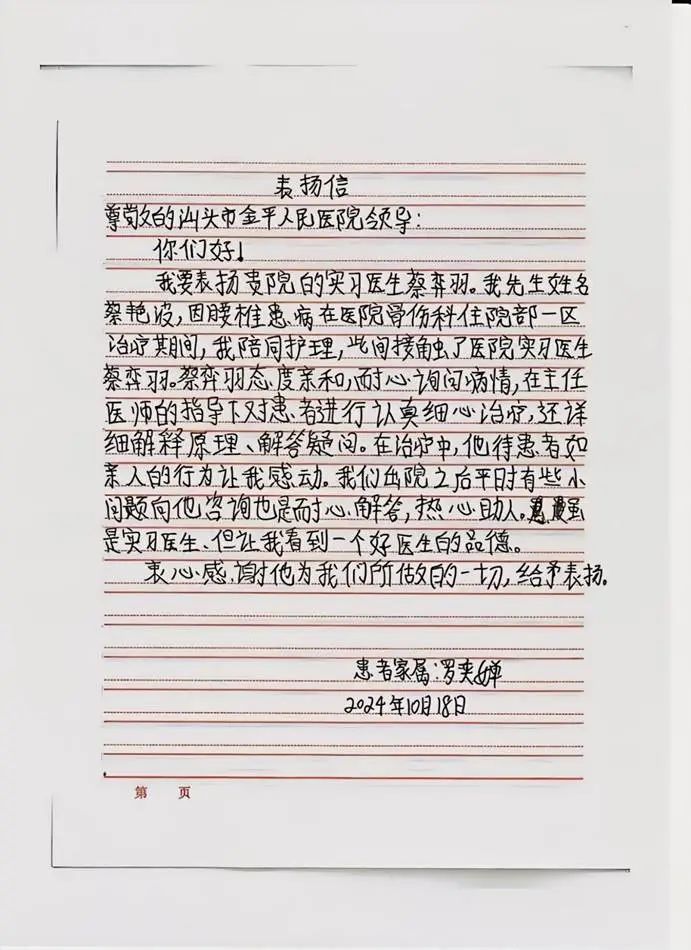 表扬信
尊敬的汕头市金平人民医院领导:
你们好!
我要表扬贵院的实习医生蔡弈羽。我先生姓名
蔡艳波,因腰椎患病在医院骨伤科住院部一区
治疗期间,我陪同护理,此间接触了医院实习医生
蔡弈羽。蔡弈羽态度亲和,耐心询问病情,在主任
医师的指导下对患者进行认真细心治疗,还详
细解释原理、解答疑问。在治疗中,他待患者如
亲人的行为让我感动。我们出院之后平时有些小
问题向他咨询也是耐心解答,热心助人。虽
是实习医生、但让我看到一个好医生的品德。
衷心感谢他为我们所做的一切,给予表扬。
患者家属:罗奕婵
2024年10月18日
第 页